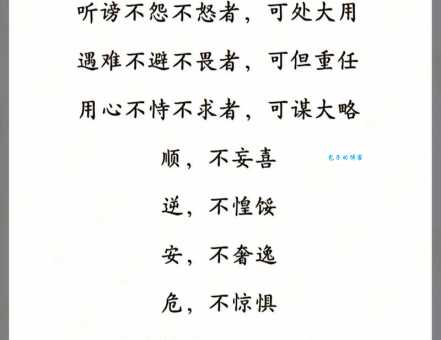 听谤不怨不怒者，可处大用
遇难不避不畏者，可但重任
用心不恃不求者，可谋大略
顺，不妄喜
逆，不惶馁
安，不奢逸
危，不惊惧